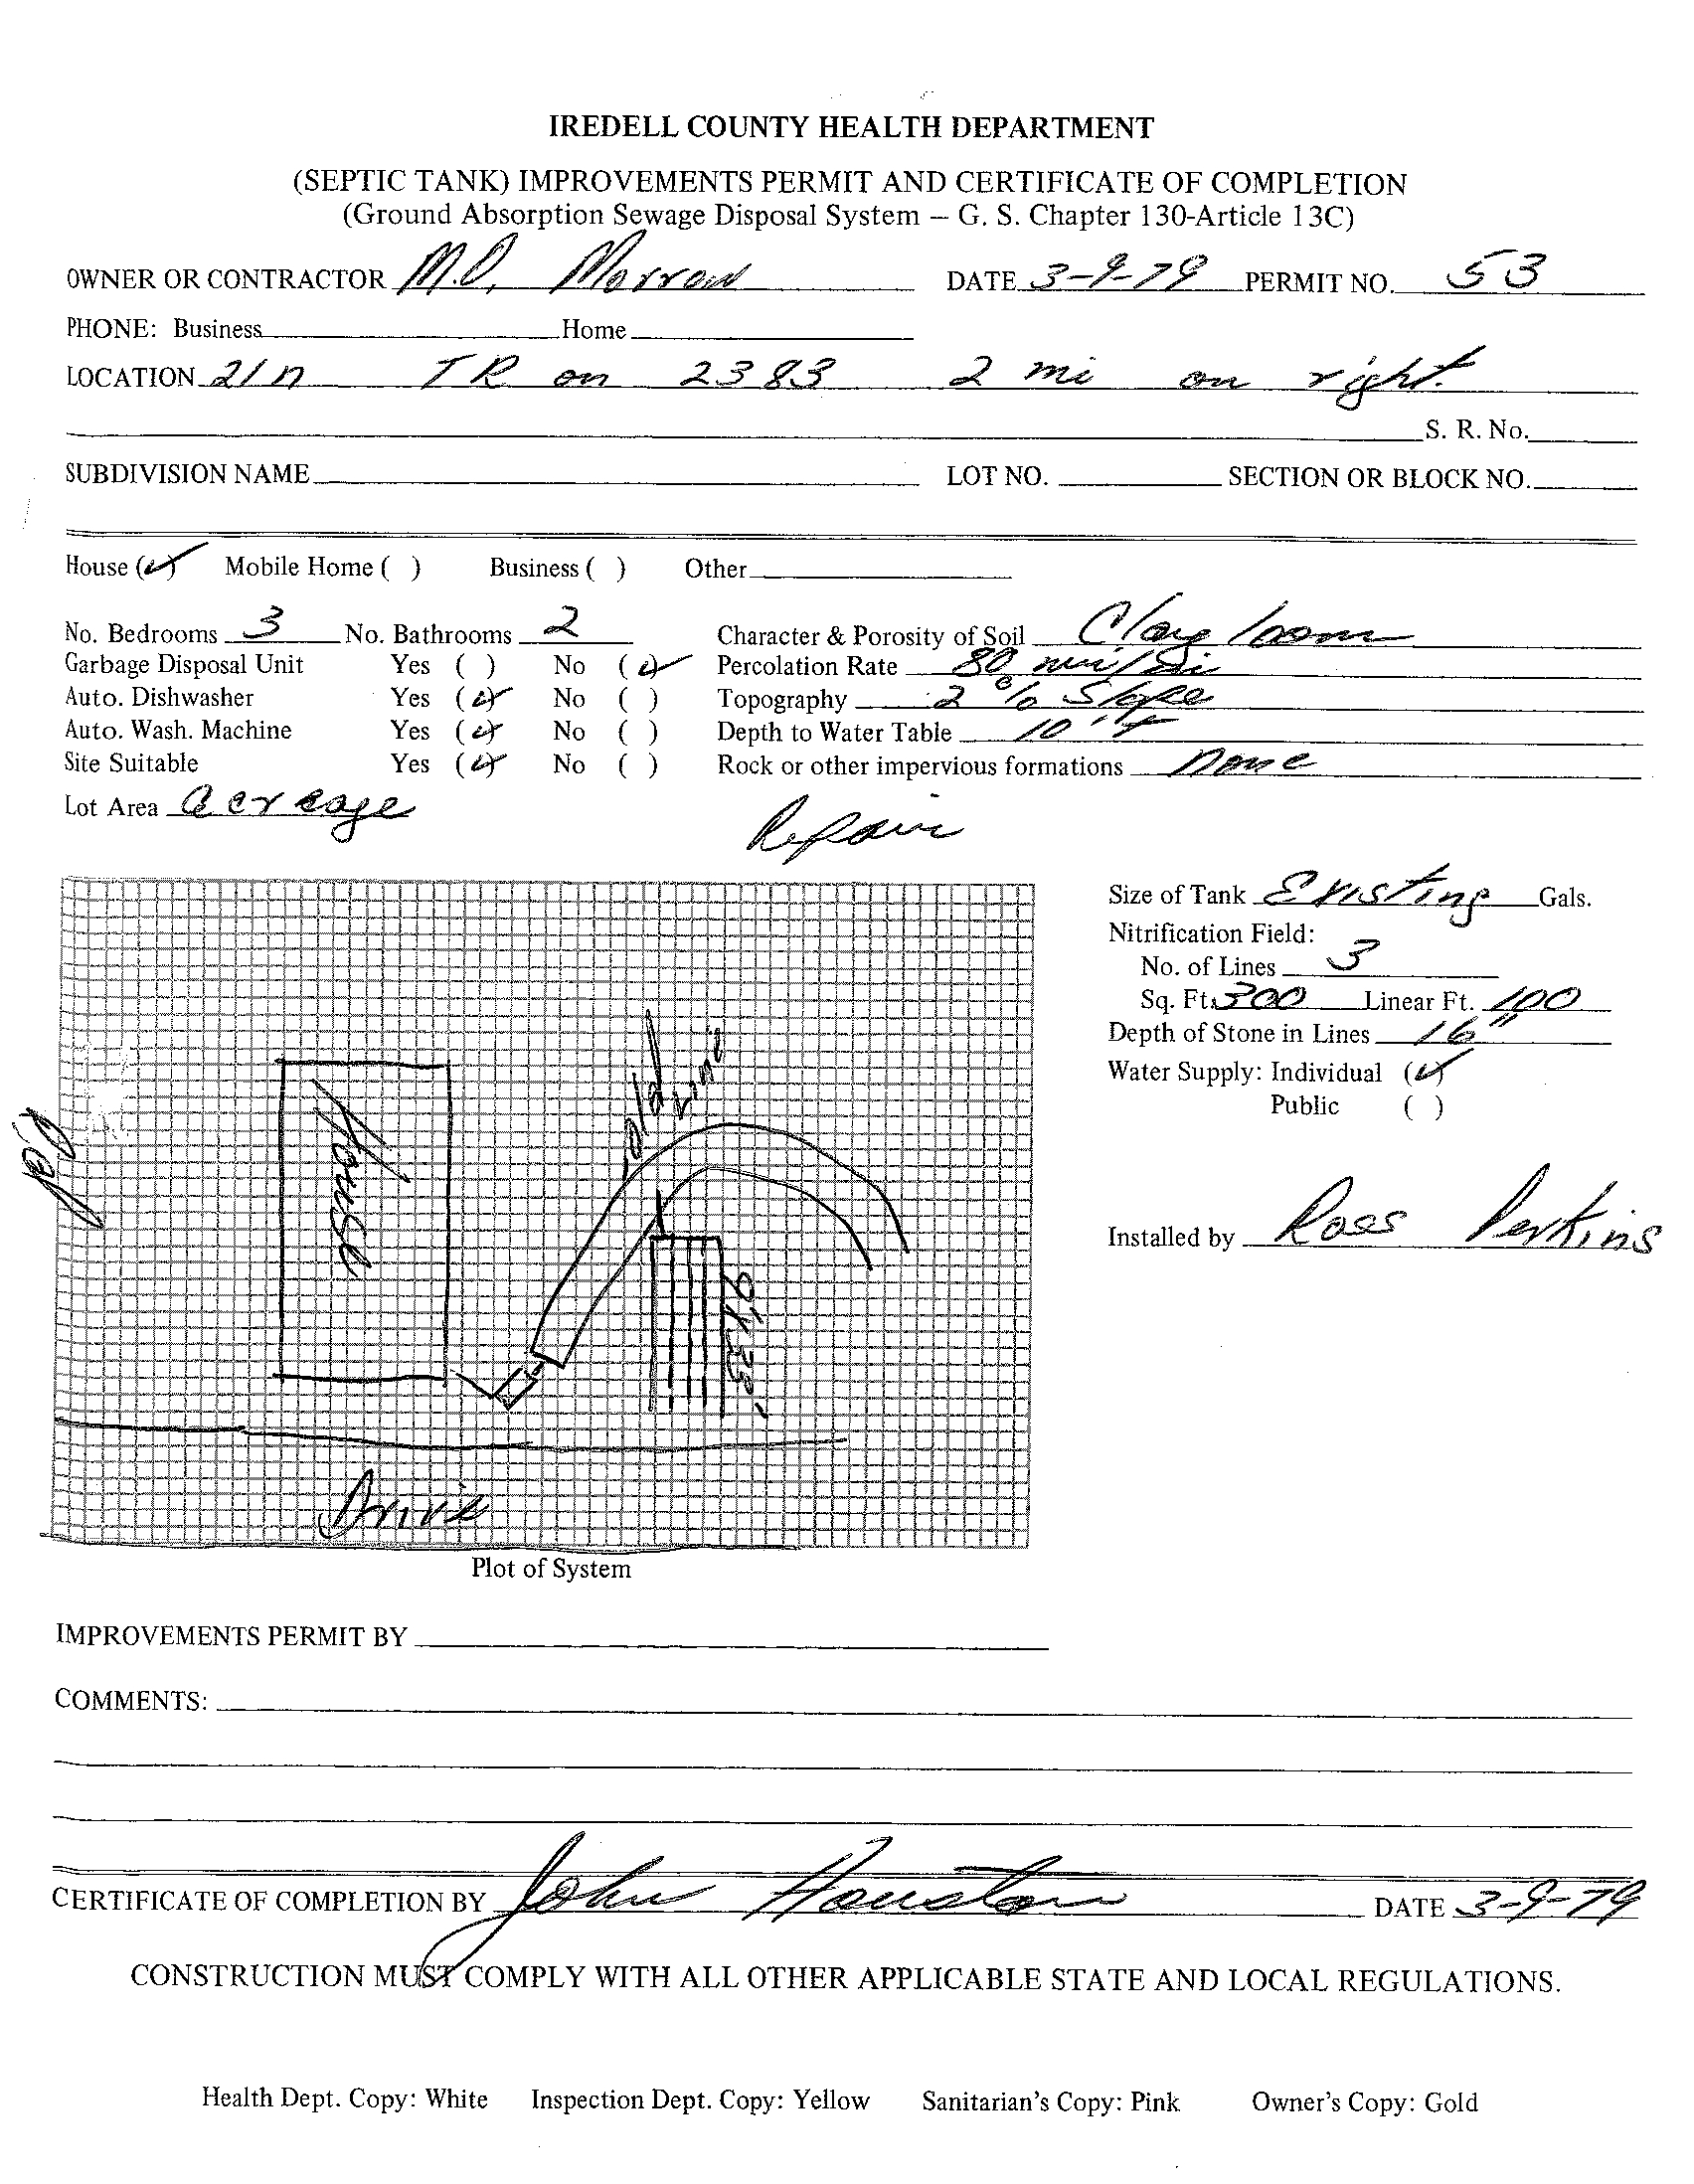 IREDELL COUNTY HEALTH DEPARTMENT
(SEPTIC TANK) IMPROVEMENTS PERMIT AND CERTIFICATE OF COMPLETION
(Ground Absorption Sewage Disposal System – G. S. Chapter 130-Article 13C)
OWNER OR CONTRACTOR M.O. Morrow DATE 3-9-79 PERMIT NO. 53
PHONE: Business Home
LOCATION 21 n TR on 2383 2 mi on right.
S. R. No.
SUBDIVISION NAME LOT NO. SECTION OR BLOCK NO.
House (✓) Mobile Home ( ) Business ( ) Other
No. Bedrooms 3 No. Bathrooms 2 Character & Porosity of Soil Clay loam
Garbage Disposal Unit Yes ( ) No (✓) Percolation Rate 80 min/in
Auto. Dishwasher Yes (✓) No ( ) Topography 2% Slope
Auto. Wash. Machine Yes (✓) No ( ) Depth to Water Table 10'+
Site Suitable Yes (✓) No ( ) Rock or other impervious formations none
Lot Area acreage Repair
Size of Tank Existing Gals.
Nitrification Field:
No. of Lines 3
Sq. Ft. 300 Linear Ft. 100
Depth of Stone in Lines 16"
Water Supply: Individual (✓)
Public ( )
Installed by Ross Perkins
old Line
House
Rd
Drive
Plot of System
IMPROVEMENTS PERMIT BY
COMMENTS:
CERTIFICATE OF COMPLETION BY John Houston DATE 3-9-79
CONSTRUCTION MUST COMPLY WITH ALL OTHER APPLICABLE STATE AND LOCAL REGULATIONS.
Health Dept. Copy: White Inspection Dept. Copy: Yellow Sanitarian's Copy: Pink Owner's Copy: Gold